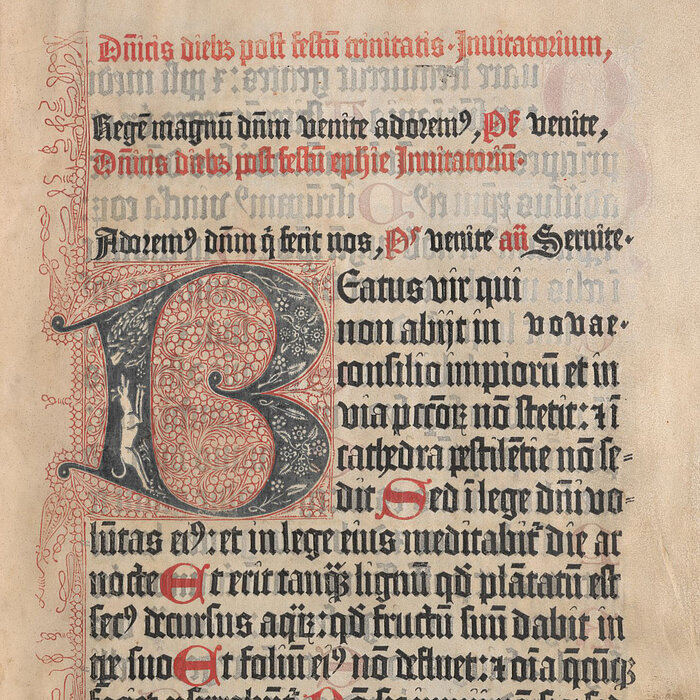 Dn̄icis diebꝫ post festū trinitatis. Inuitatorium,
Regē magnū dn̄m venite adoremꝰ, Ps̄ venite,
Dn̄icis diebꝫ post festū ephie Inuitatoriū.
Adoremꝰ dn̄m q̄ fecit nos, Ps̄ venite an̄ Seruite.
Beatus vir qui
non abijt in vovae.
consilio impiorū et in
via pccōꝝ nō stetit: ⁊ ī
cathedra pestilētie nō se=
dit Sed ī lege dn̄i vo=
lūtas eiꝰ: et in lege eius meditabit᷑ die ac
nocte Et erit tanqꝫ lignū qd̄ plātatū est
secꝰ decursus aqꝝ: qd̄ fructū suū dabit in
tpe suo Et foliū eiꝰ nō defluet: ⁊ oīa q̄cūqꝫ